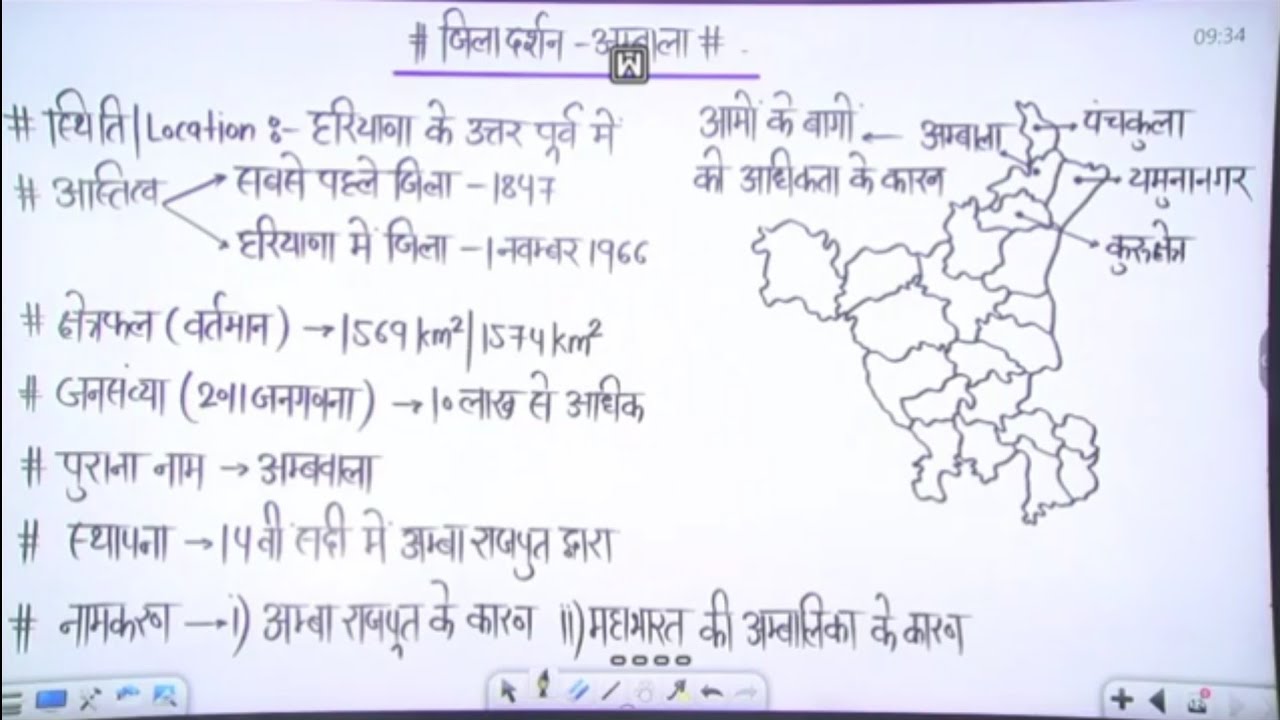 # जिला दर्शन - अम्बाला #
09:34
# स्थिति | Location :- हरियाणा के उत्तर पूर्व में
# अस्तित्व → सबसे पहले जिला - 1847
→ हरियाणा में जिला - 1 नवम्बर 1966
# क्षेत्रफल (वर्तमान) → 1569 km² | 1574 km²
# जनसंख्या (2011 जनगणना) → 10 लाख से अधिक
# पुराना नाम → अम्बवाला
# स्थापना → 14वीं सदी में अम्बा राजपुत द्वारा
# नामकरण → i) अम्बा राजपूत के कारण ii) महाभारत की अम्बालिका के कारण
आमों के बागों ← अम्बाला
की अधिकता के कारण
पंचकुला
यमुनानगर
कुरुक्षेत्र